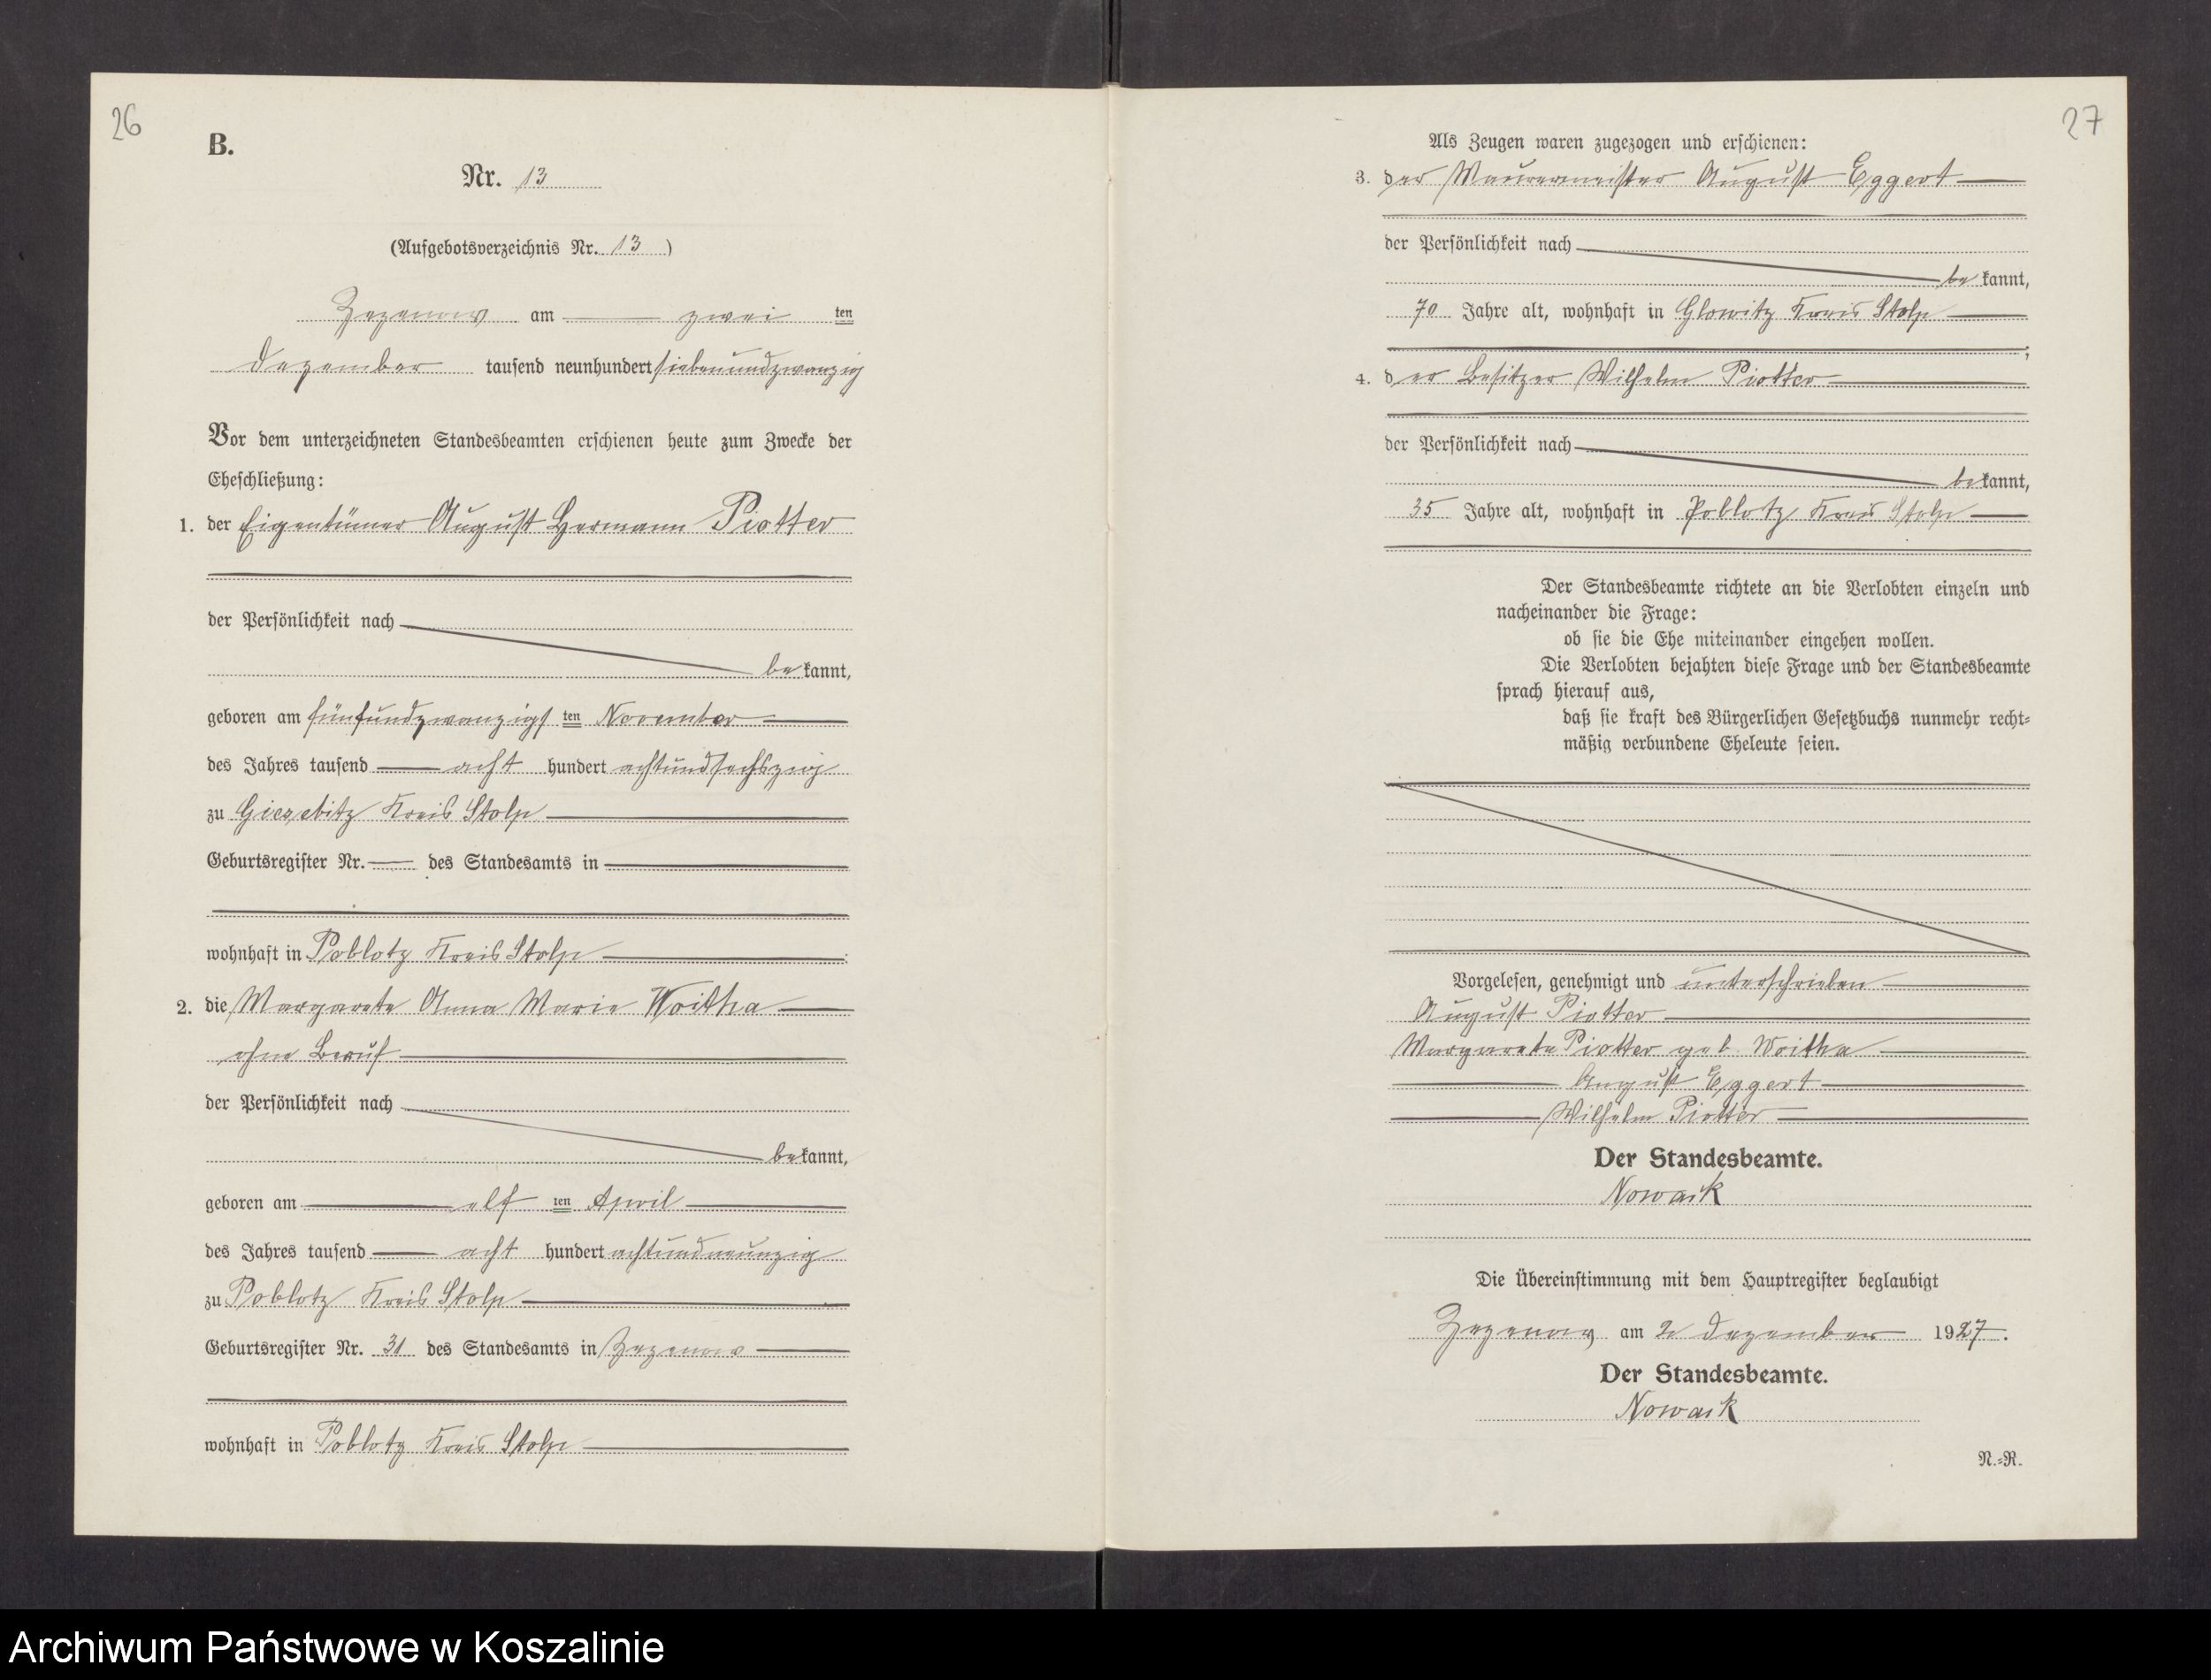 26
B.
Nr. 13
(Aufgebotsverzeichnis Nr. 13)
Zezenow am zwei ten
Dezember tausend neunhundert siebenundzwanzig
Vor dem unterzeichneten Standesbeamten erschienen heute zum Zwecke der
Eheschließung:
1. der Eigentümer August Hermann Piotter
der Persönlichkeit nach
bekannt,
geboren am fünfundzwanzigsten November
des Jahres tausend acht hundert achtundsechszig
zu Giesebitz Kreis Stolp
Geburtsregister Nr. des Standesamts in
wohnhaft in Poblotz Kreis Stolp;
2. die Margarete Anna Marie Woitha
ohne Beruf
der Persönlichkeit nach
bekannt,
geboren am elf ten April
des Jahres tausend acht hundert achtundneunzig
zu Poblotz Kreis Stolp
Geburtsregister Nr. 31 des Standesamts in Zezenow
wohnhaft in Poblotz Kreis Stolp
27
Als Zeugen waren zugezogen und erschienen:
3. der Maurermeister August Eggert
der Persönlichkeit nach
bekannt,
70 Jahre alt, wohnhaft in Glowitz Kreis Stolp
;
4. der Besitzer Wilhelm Piotter
der Persönlichkeit nach
bekannt,
35 Jahre alt, wohnhaft in Poblotz Kreis Stolp
Der Standesbeamte richtete an die Verlobten einzeln und
nacheinander die Frage:
ob sie die Ehe miteinander eingehen wollen.
Die Verlobten bejahten diese Frage und der Standesbeamte
sprach hierauf aus,
daß sie kraft des Bürgerlichen Gesetzbuchs nunmehr recht-
mäßig verbundene Eheleute seien.
Vorgelesen, genehmigt und unterschrieben
August Piotter
Margarete Piotter geb. Woitha
August Eggert
Wilhelm Piotter
Der Standesbeamte.
Nowack
Die Übereinstimmung mit dem Hauptregister beglaubigt
Zezenow am 2 Dezember 1927.
Der Standesbeamte.
Nowack
N.-R.
Archiwum Państwowe w Koszalinie